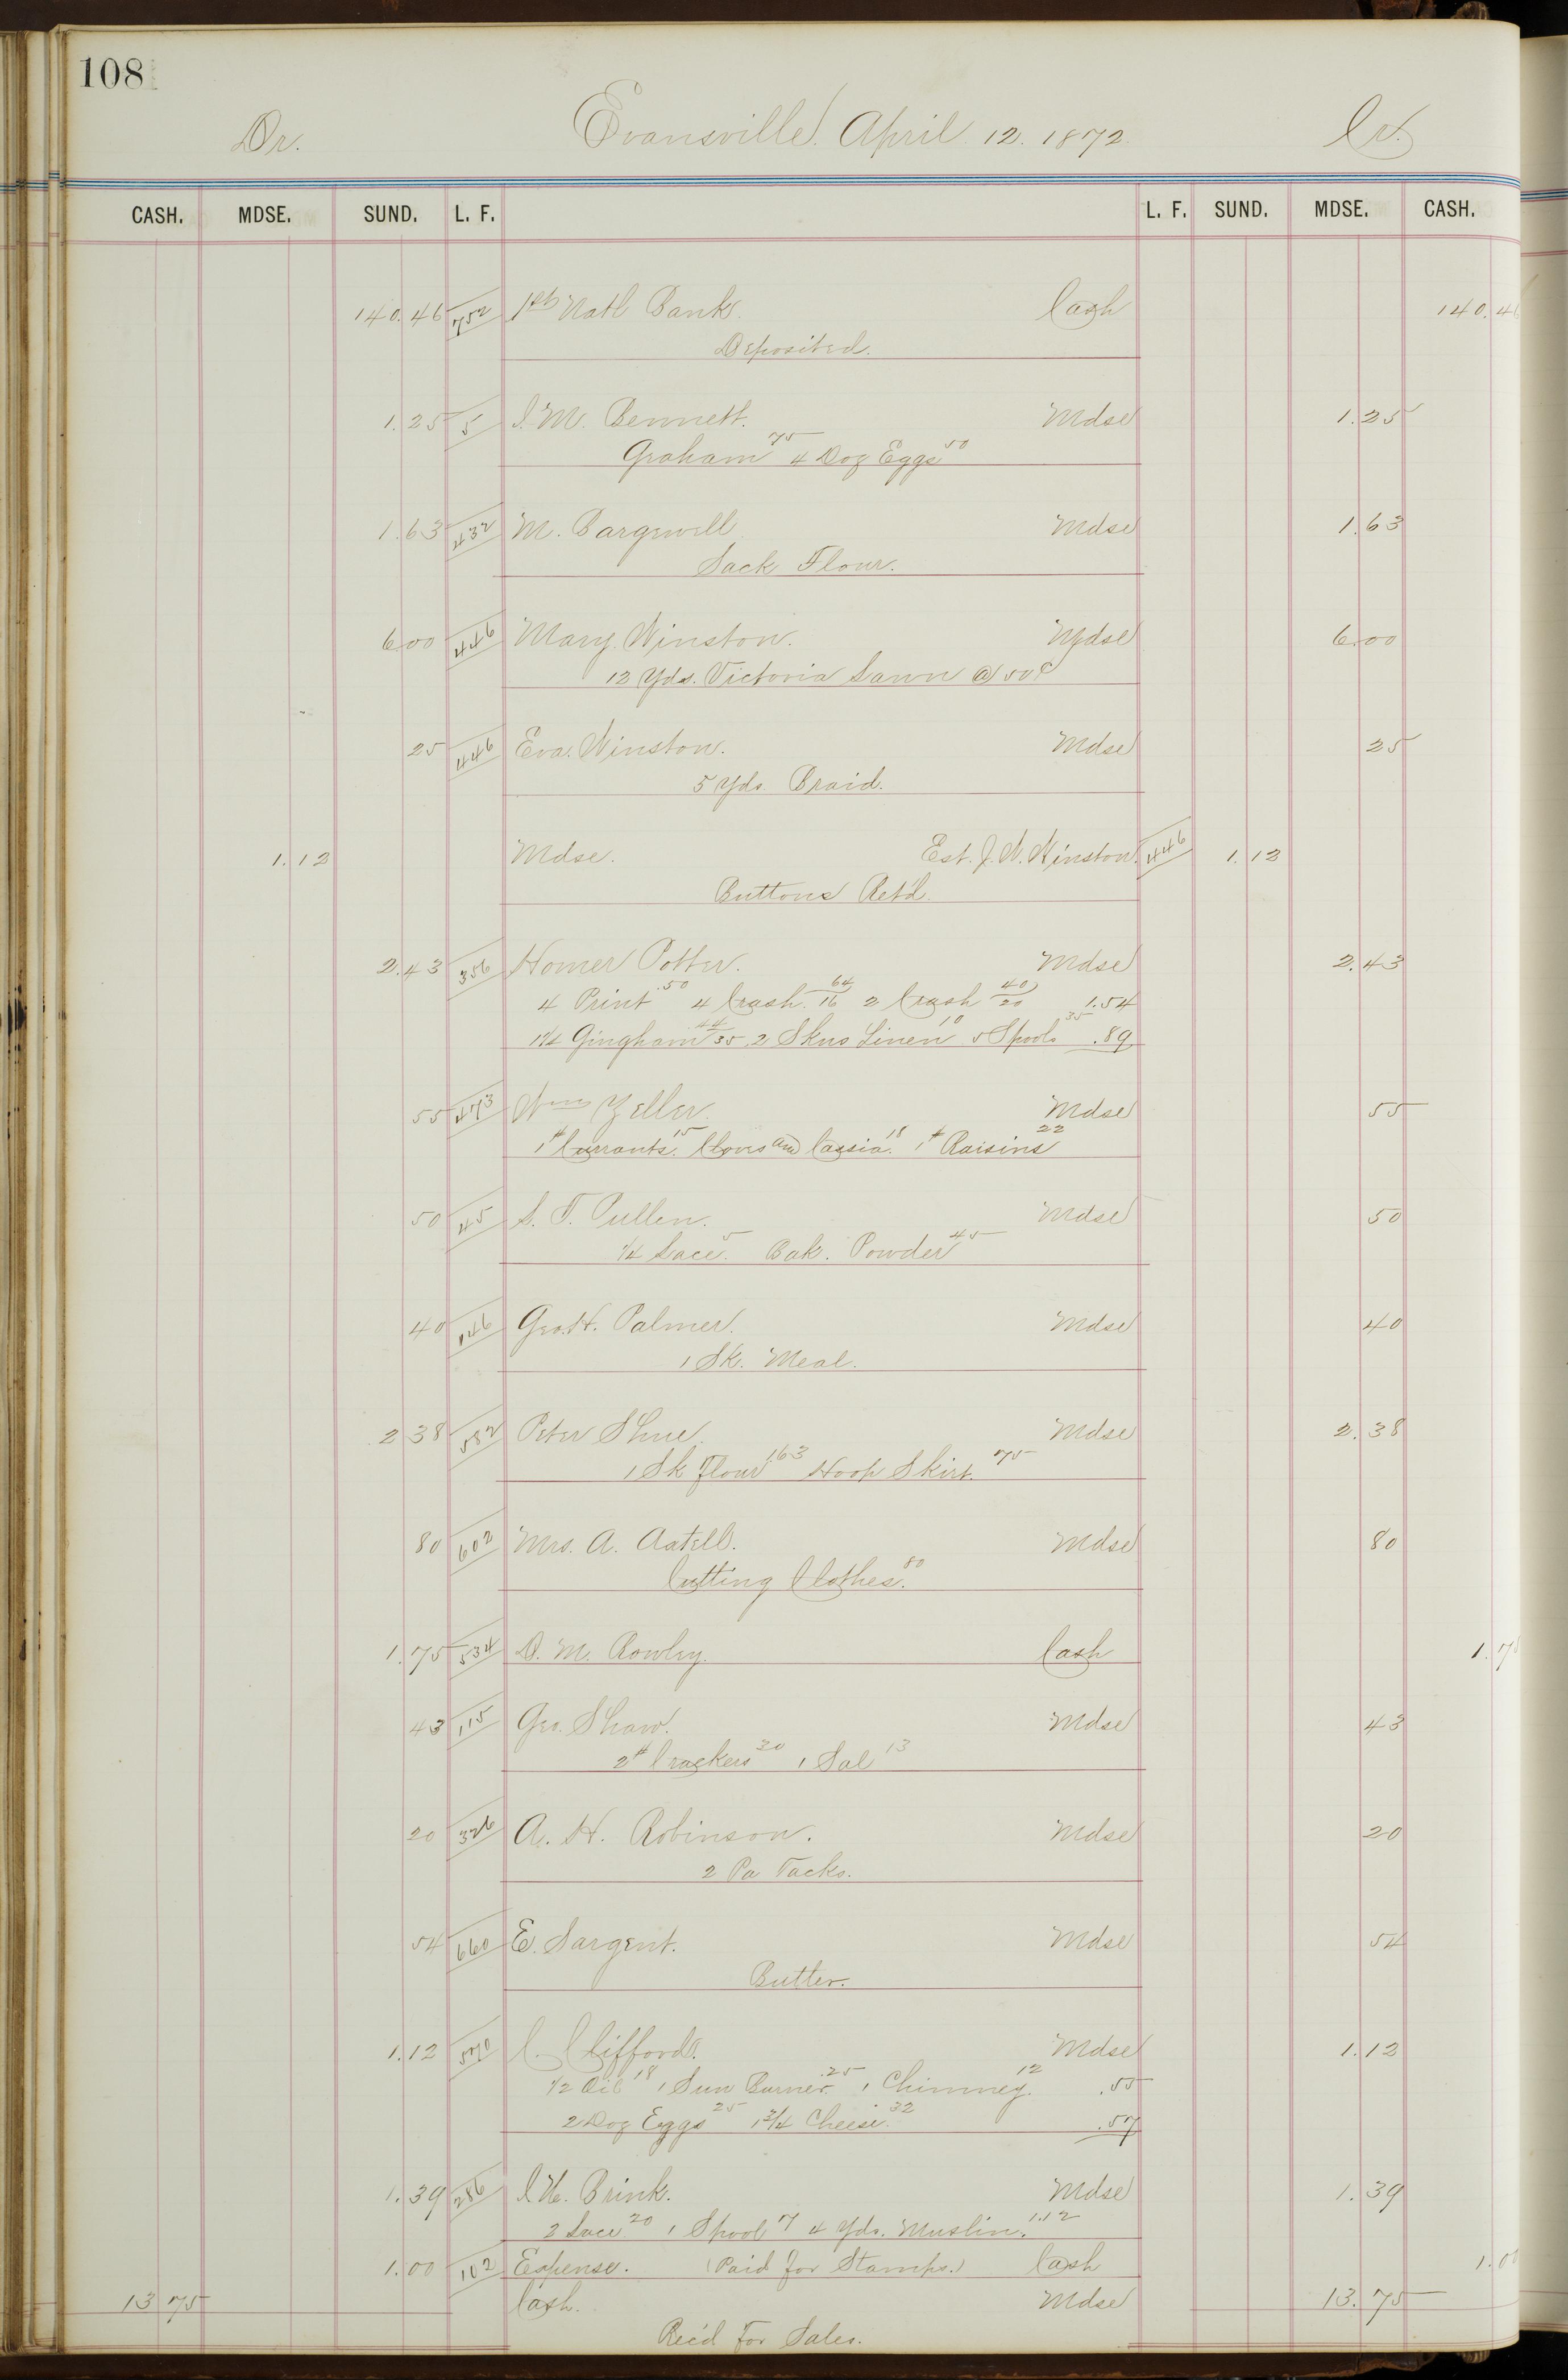 108
Dr. Evansville. April 12. 1872 Cr.
CASH. MDSE. SUND. L. F. L. F. SUND. MDSE. CASH.
140.46 752 1st Natl Bank. Cash 140.46
Deposited.
1.25 5 I. M. Bennett. Mdse 1.25
Graham 75 4 Doz Eggs 50
1.63 432 M. Bargewell Mdse 1.63
Sack Flour.
6.00 446 Mary Winston. Mdse 6.00
12 Yds. Victoria Lawn @ 50c
25 446 Eva. Winston. Mdse 25
5 Yds. Braid.
1.12 Mdse. Est. J. W. Winston. 446 1.12
Buttons Retd.
2.43 356 Homer Potter. Mdse 2.43
4 Print .50 4 Crash 64/16 2 Crash 40/20 1.54
1 1/4 Gingham 44/35 2 Skns Linen 10 5 Spools 35 .89
55 473 Wm Zeller. Mdse 55
1# Currants. 15 Cloves and Cassia. 18 1# Raisins 22
50 45 S. T. Pullen. Mdse 50
1/4 Lace. 5 Bak. Powder 45
40 146 Geo. H. Palmer. Mdse 40
1 Sk. Meal.
2.38 582 Peter Shue. Mdse 2.38
1 Sk Flour 1.63 Hoop Skirt. 75
80 602 Mrs. A. Axtell. Mdse 80
Cutting Clothes. 80
1.75 534 D. M. Rowley. Cash 1.75
43 115 Geo. Shaw. Mdse 43
2# Crackers 30 1 Sal 13
20 326 A. H. Robinson. Mdse 20
2 Pa Tacks.
54 660 E. Sargent. Mdse 54
Butter.
1.12 570 C. Clifford. Mdse 1.12
1/2 Oil 18 1 Sun Burner .25 1 Chimney. 12 .55
2 Doz Eggs 25 1 3/4 Cheese. 32 .57
1.39 286 Brink. Mdse 1.39
2 Lace 20 1 Spool 7 4 Yds. Muslin. 1.12
1.00 102 Expense. (Paid for Stamps.) Cash 1.00
13 75 Cash. Mdse 13.75
Rec'd For Sales.